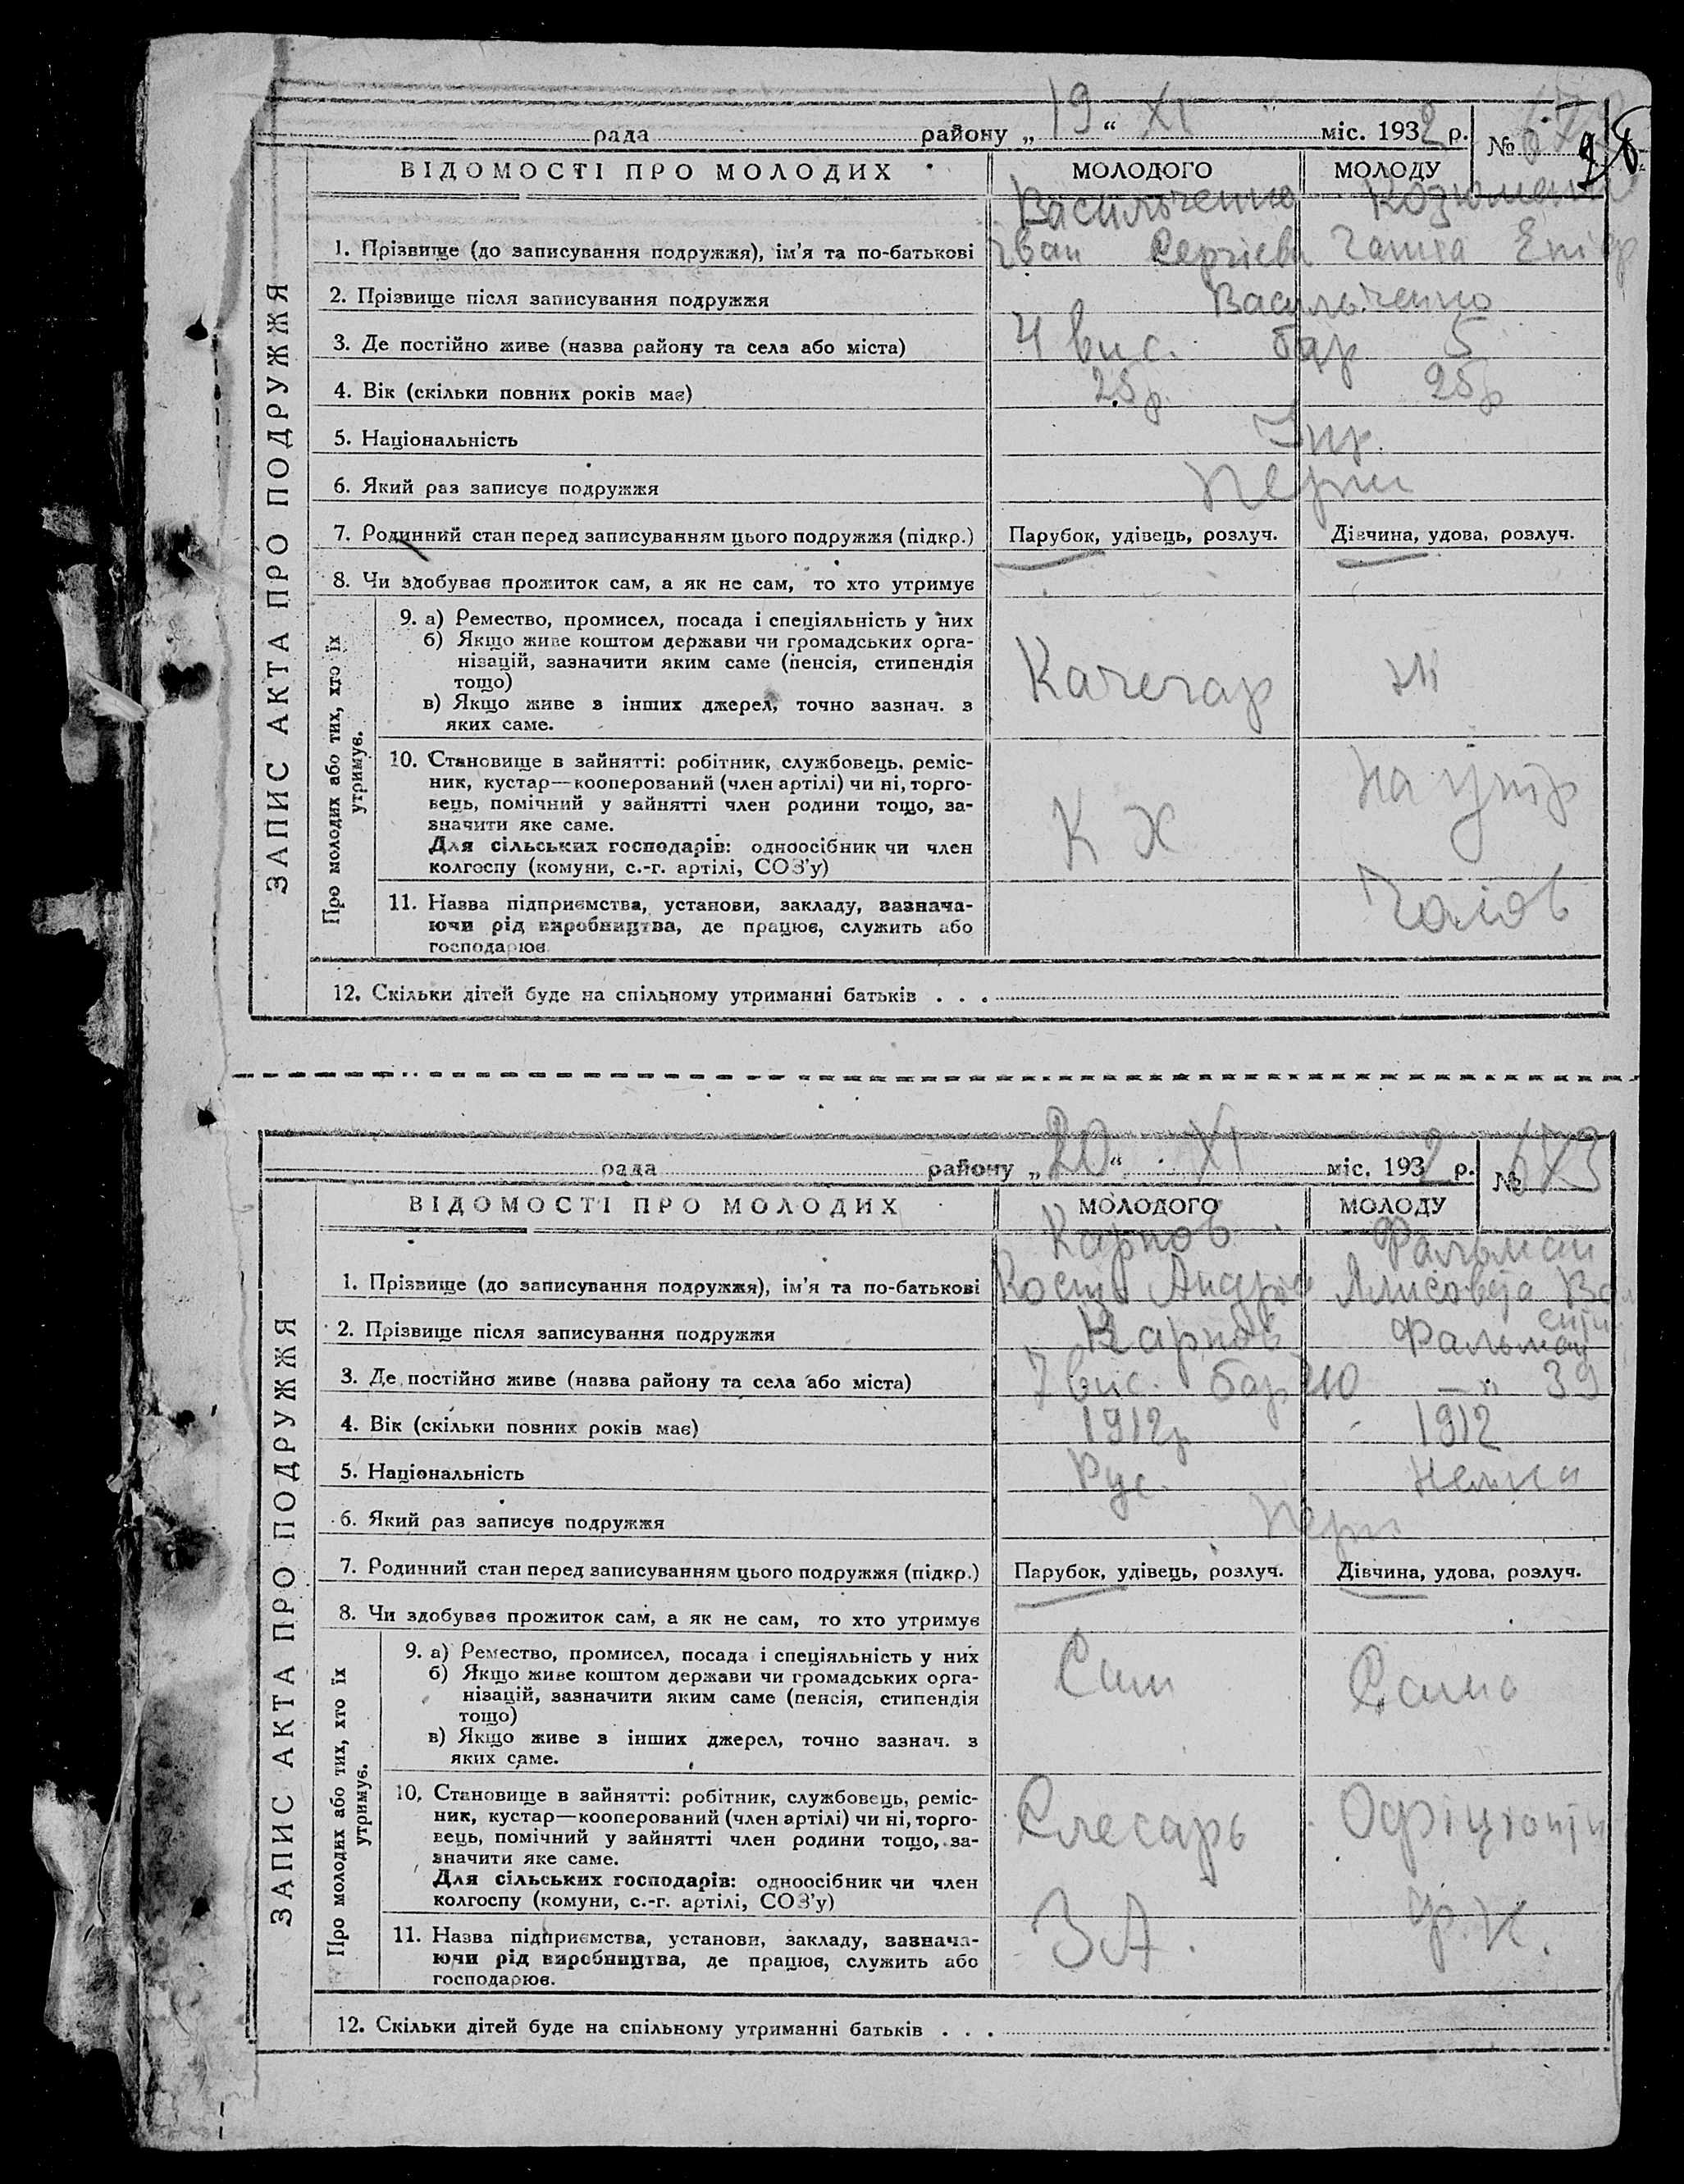 рада району „ 19 “ XI міс. 1932 р. №
ВІДОМОСТІ ПРО МОЛОДИХ МОЛОДОГО МОЛОДУ
Васильченко
1. Прізвище (до записування подружжя), ім'я та по-батькові Іван Сергієв
2. Прізвище після записування подружжя Васильченко
3. Де постійно живе (назва району та села або міста) 4 вис. бар 5
4. Вік (скільки повних років має) 25р. 25р
5. Національність Укр.
6. Який раз записує подружжя Перш
7. Родинний стан перед записуванням цього подружжя (підкр.) Парубок, удівець, розлуч. Дівчина, удова, розлуч.
8. Чи здобуває прожиток сам, а як не сам, то хто утримує
ЗАПИС АКТА ПРО ПОДРУЖЖЯ
Про молодих або тих, хто їх
утримує.
9. а) Ремество, промисел, посада і спеціяльність у них
б) Якщо живе коштом держави чи громадських орга-
нізацій, зазначити яким саме (пенсія, стипендія
тощо)
в) Якщо живе з інших джерел, точно зазнач. з
яких саме.
Качегар
10. Становище в зайнятті: робітник, службовець, реміс-
ник, кустар—кооперований (член артілі) чи ні, торго-
вець, помічний у зайнятті член родини тощо, за-
значити яке саме.
Для сільських господарів: одноосібник чи член
колгоспу (комуни, с.-г. артілі, СОЗ'у)
К Х на утр
11. Назва підприємства, установи, закладу, зазнача-
ючи рід виробництва, де працює, служить або
господарює.
12. Скільки дітей буде на спільному утриманні батьків . . .
рада району „ 20 “ XI міс. 1932 р. № 673
ВІДОМОСТІ ПРО МОЛОДИХ МОЛОДОГО МОЛОДУ
Карпов Фальман
1. Прізвище (до записування подружжя), ім'я та по-батькові Кость Андрів
2. Прізвище після записування подружжя Карпов Фальман
3. Де постійно живе (назва району та села або міста) 7 вис. бар 210 — " 39
4. Вік (скільки повних років має) 1912р 1912
5. Національність Рус. Немка
6. Який раз записує подружжя Перш
7. Родинний стан перед записуванням цього подружжя (підкр.) Парубок, удівець, розлуч. Дівчина, удова, розлуч.
8. Чи здобуває прожиток сам, а як не сам, то хто утримує
ЗАПИС АКТА ПРО ПОДРУЖЖЯ
Про молодих або тих, хто їх
утримує.
9. а) Ремество, промисел, посада і спеціяльність у них
б) Якщо живе коштом держави чи громадських орга-
нізацій, зазначити яким саме (пенсія, стипендія
тощо)
в) Якщо живе з інших джерел, точно зазнач. з
яких саме.
Сам Сама
10. Становище в зайнятті: робітник, службовець, реміс-
ник, кустар—кооперований (член артілі) чи ні, торго-
вець, помічний у зайнятті член родини тощо, за-
значити яке саме.
Для сільських господарів: одноосібник чи член
колгоспу (комуни, с.-г. артілі, СОЗ'у)
Слесарь
11. Назва підприємства, установи, закладу, зазнача-
ючи рід виробництва, де працює, служить або
господарює.
ЗА. ф.К.
12. Скільки дітей буде на спільному утриманні батьків . . .